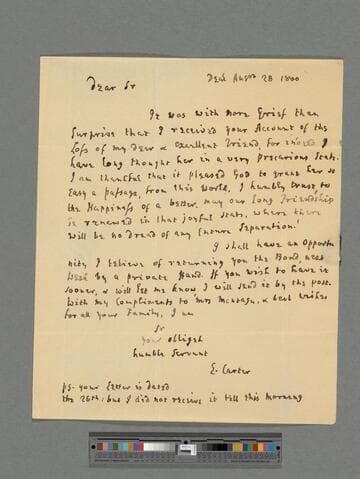 Deal Augst 28 1800
Dear Sr
It was with more Grief than
Surprise that I received your Account of the
Loss of my dear & excellent Friend, for indeed I
have long thought her in a very precarious State.
I am thankful that it pleased God to grant her so
easy a passage, from this World, I humbly trust, to
the Happiness of a better. may our long Friendship
be renewed in that joyful State, where there
will be no dread of any future Separation!
I shall have an Opportu
nity I believe of returning you the Bond, next
Week by a private Hand. If you wish to have it
sooner, & will let me know I will send it by the post.
With my Compliments to Mrs Montagu, & best wishes
for all your Family, I am
Sr
your obliged
humble Servant
E. Carter
ps. your Letter is dated
the 26th: but I did not receive it till this Morning